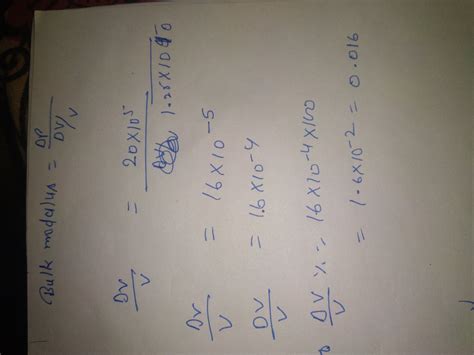 Bulk modulus = DP / DV/V
DV/V = 20×10^5 / 1.25×10^10
DV/V = 16×10^-5
DV/V = 1.6×10^-4
DV/V % = 16×10^-4×100
= 1.6×10^-2 = 0.016